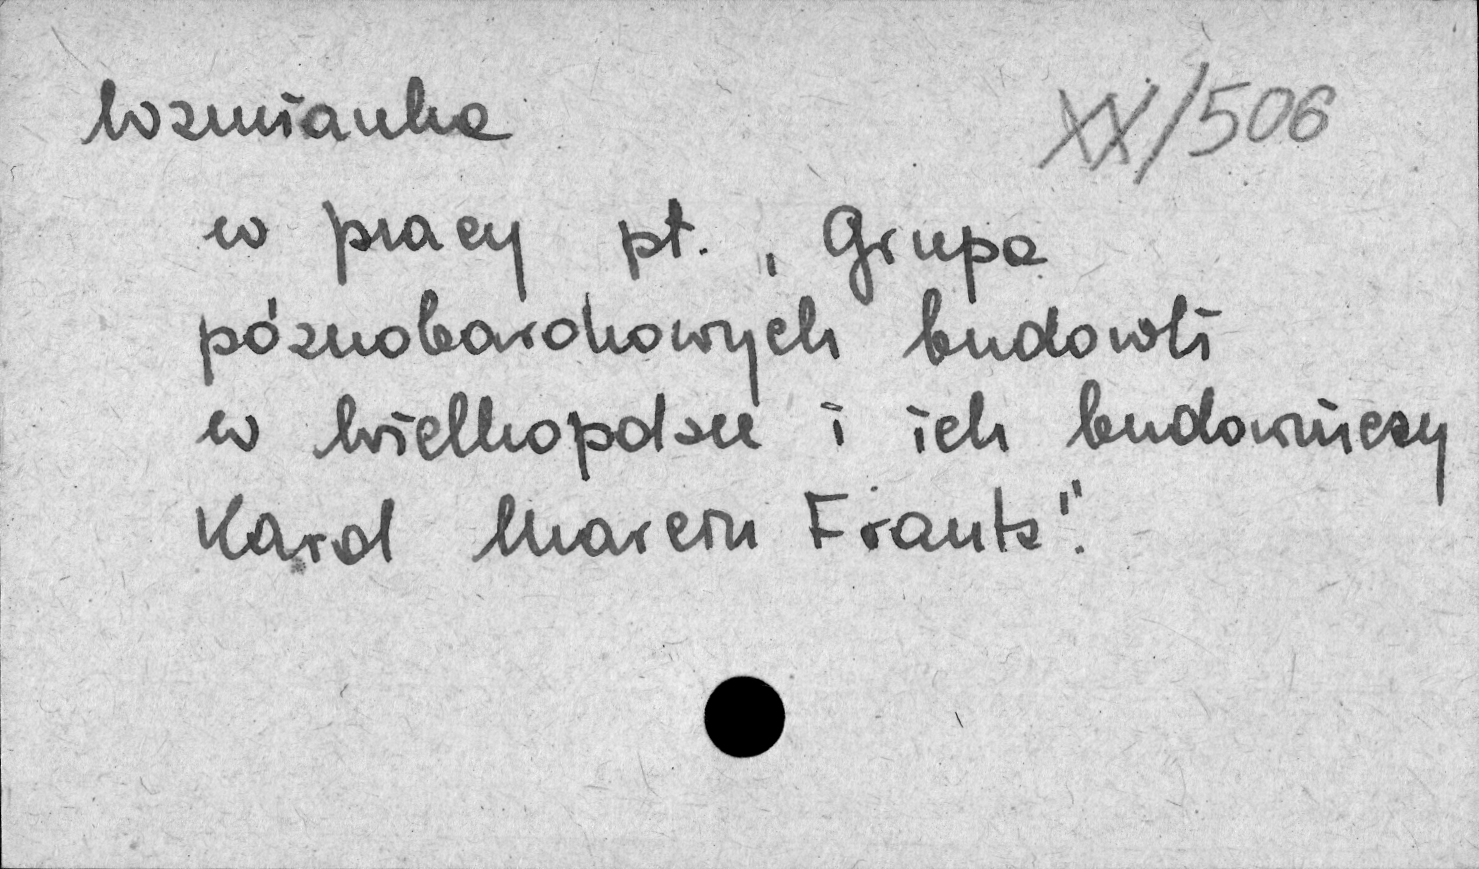 Wzmianka XX/506
w pracy pt. „Grupa
późnobarokowych budowli
w Wielkopolsce i ich budowniczy
Karol Marcin Frantz".